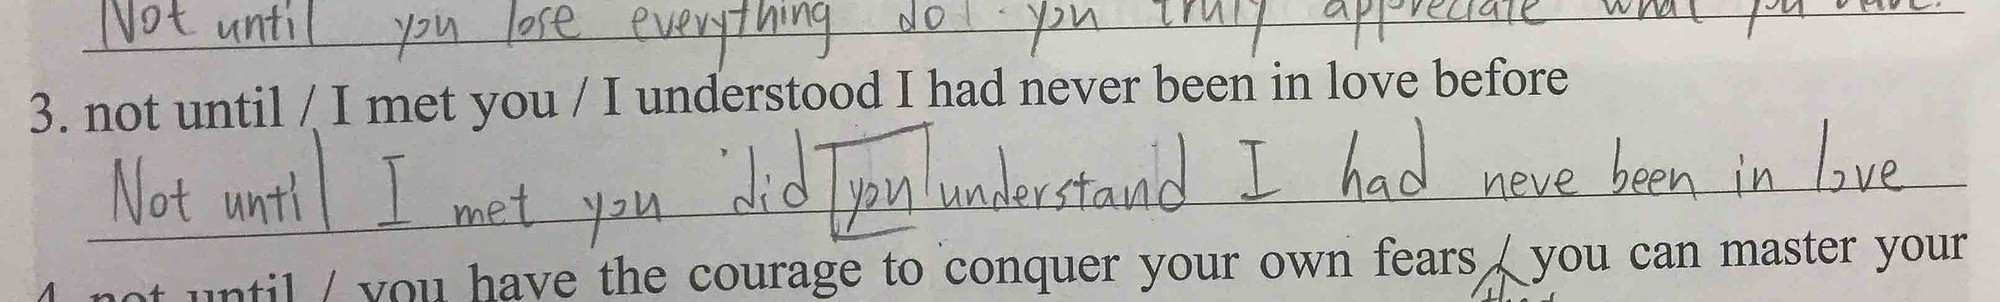 Not until you lose everything do you truly appreciate what you have.
3. not until / I met you / I understood I had never been in love before
Not until I met you did you understand I had neve been in love
4. not until / you have the courage to conquer your own fears / you can master your